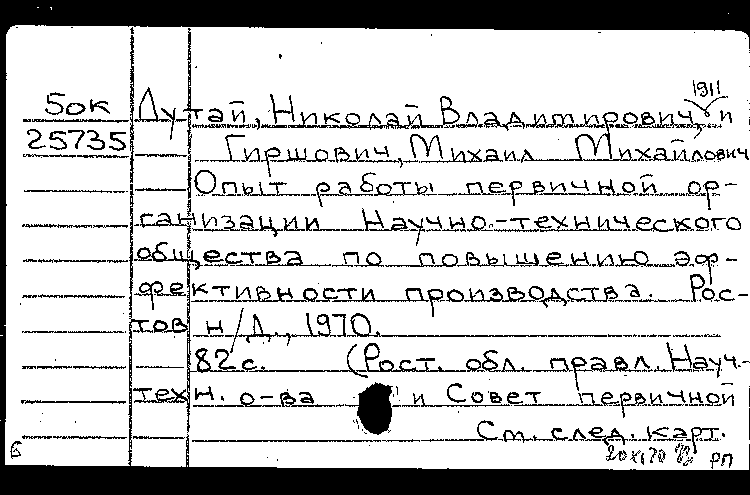 1911
5ок Лутай, Николай Владимирович, и
25735 Гиршович, Михаил Михайлович
Опыт работы первичной ор-
ганизации Научно-технического
общества по повышению эф-
фективности производства. Рос-
тов н/Д., 1970.
82 с. (Рост. обл. правл. Науч.-
техн. о-ва и Совет первичной
См. след. карт.
Б 20 XI 70 РП